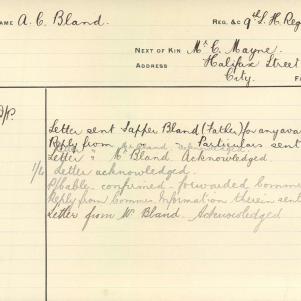 NAME A. C. Bland. REG. &C 9th L. H. Reg
NEXT OF KIN Mrs C. Mayne.
ADDRESS Halifax Street
City.
Letter sent Sapper Bland (Father) for any ava
Reply from " " Particulars sent
Letter " Mr Bland Acknowledged.
Letter acknowledged.
P/Cable confirmed - forwarded Comme
Reply from Comm. Information therein sent
Letter from W. Bland. Acknowledged